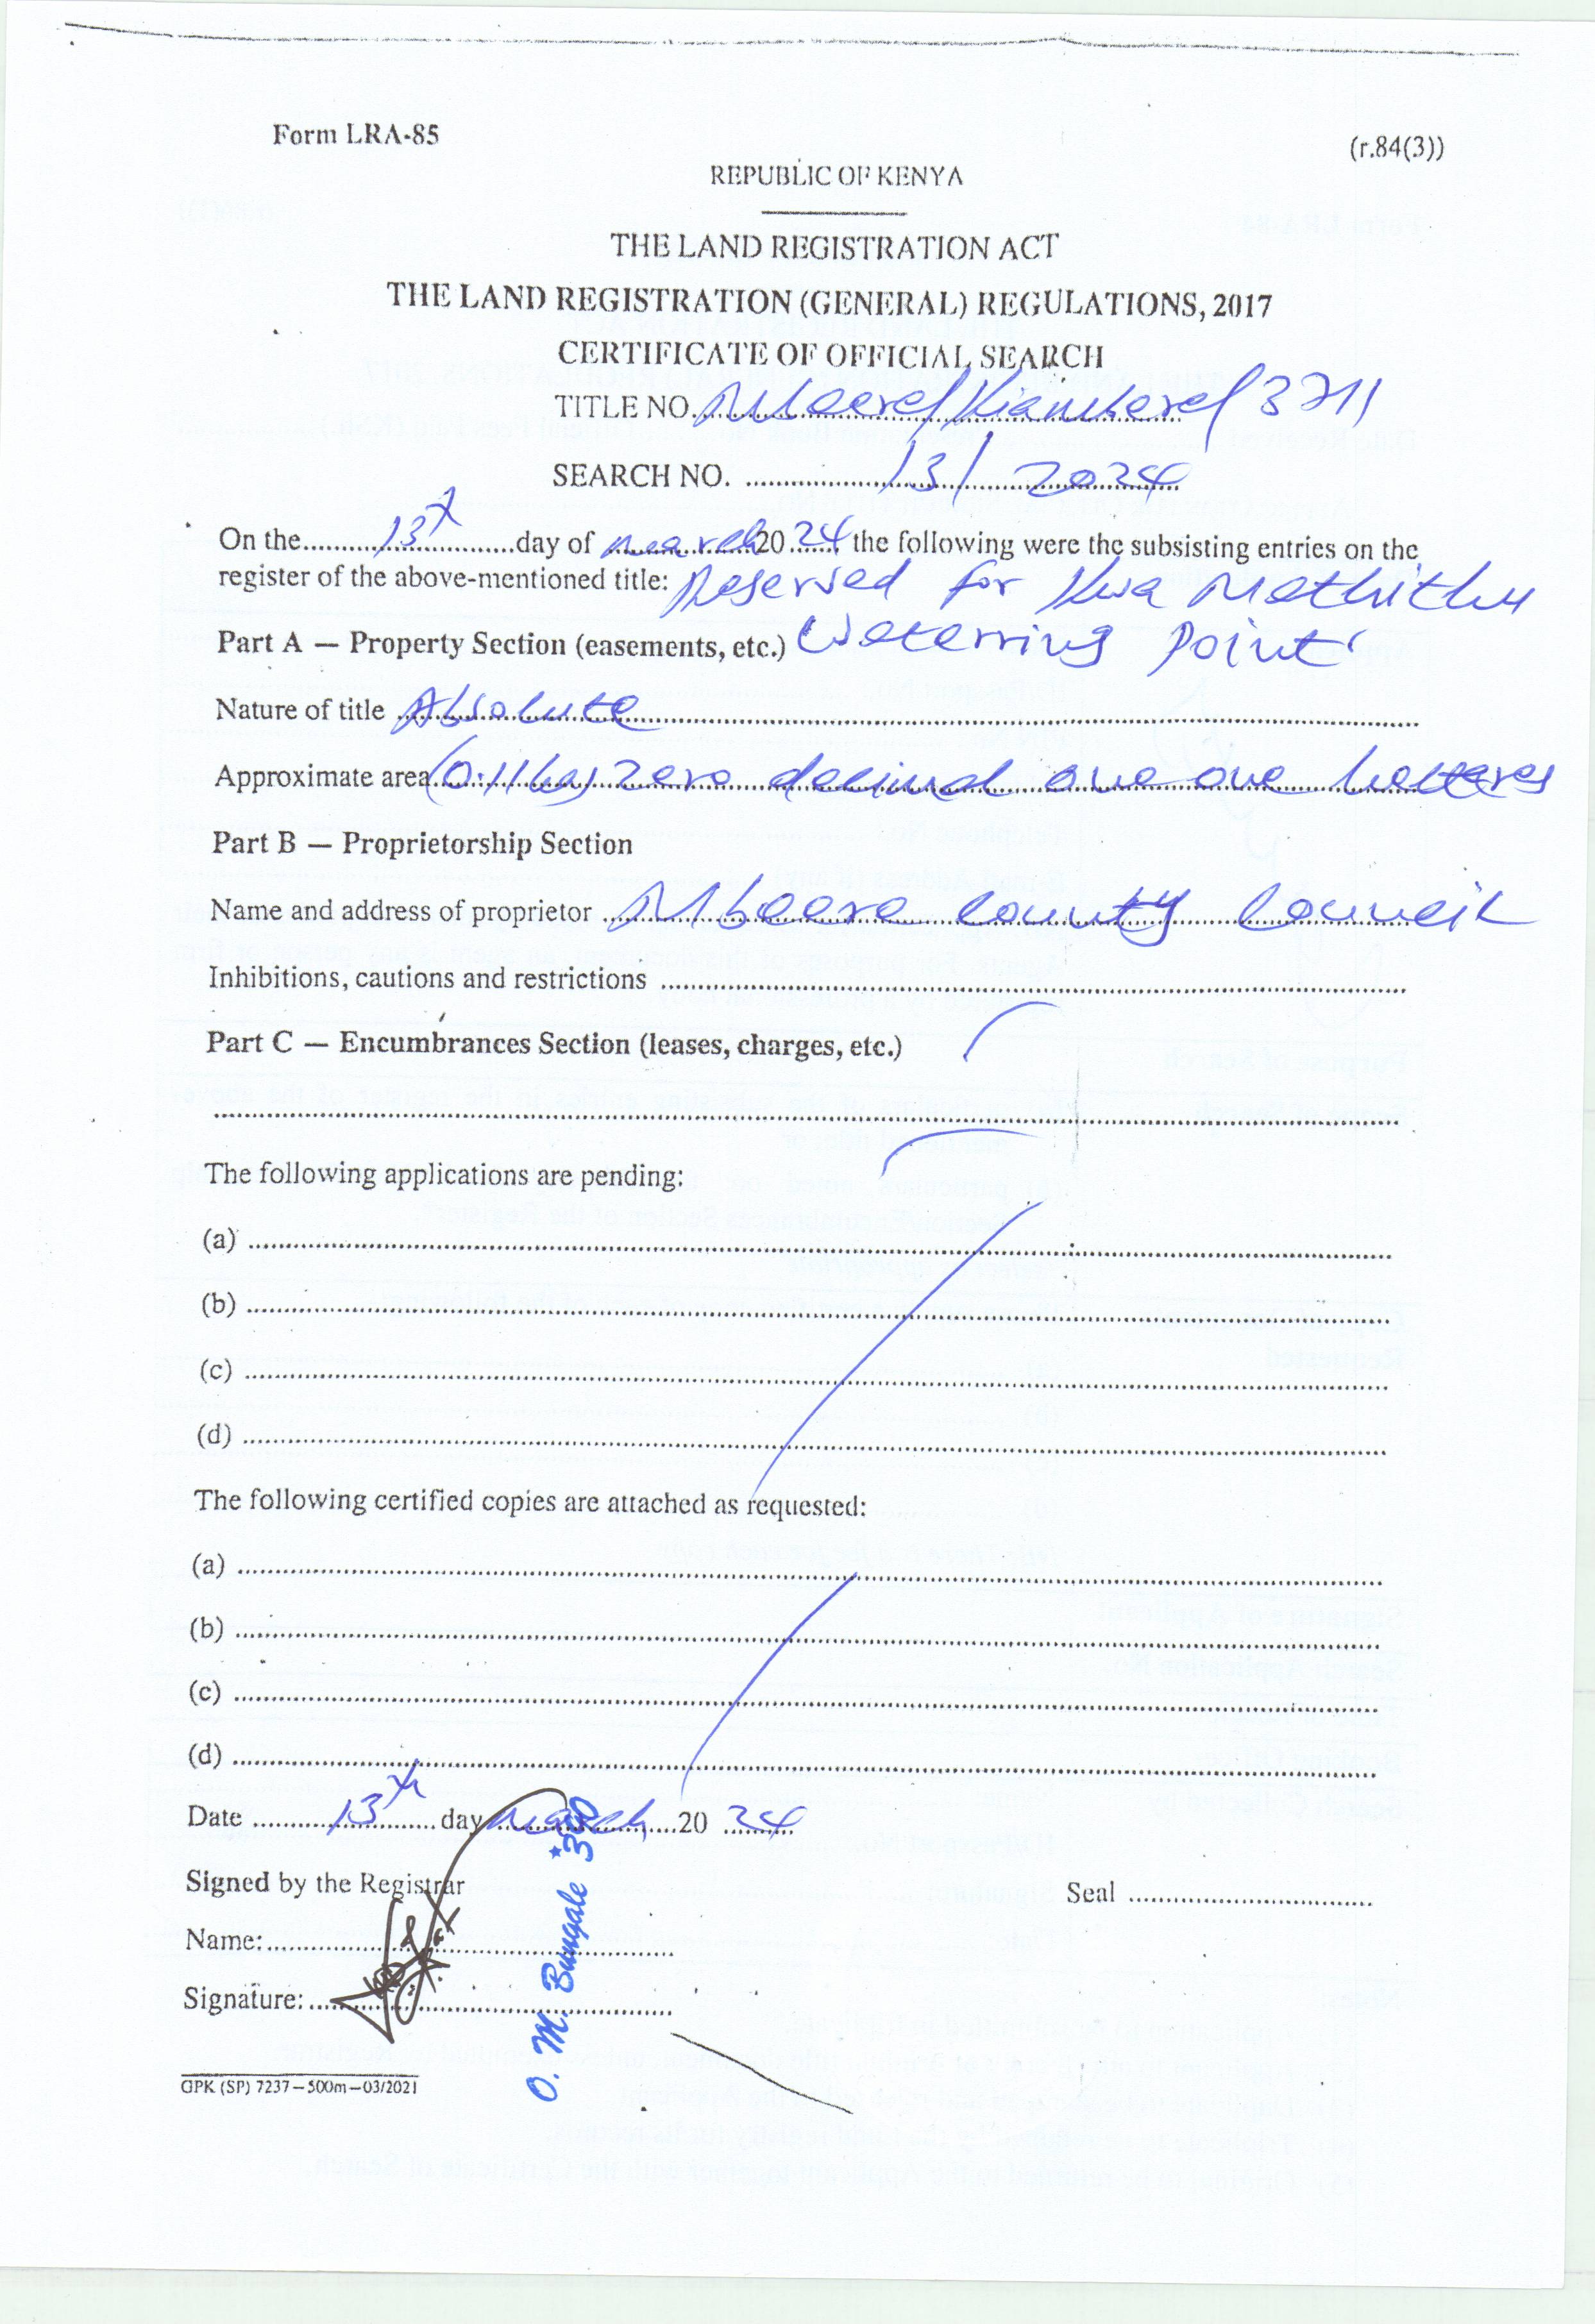 Form LRA-85
(r.84(3))
REPUBLIC OF KENYA
THE LAND REGISTRATION ACT
THE LAND REGISTRATION (GENERAL) REGULATIONS, 2017
CERTIFICATE OF OFFICIAL SEARCH
TITLE NO. Mbeere/Kiambere/3711
SEARCH NO. 13/2024
On the 13th day of march 2024 the following were the subsisting entries on the
register of the above-mentioned title: Reserved for Kwa Mathithu
Part A — Property Section (easements, etc.) Waterring Point
Nature of title Absolute
Approximate area (0.11ha) zero decimal one one hectares
Part B — Proprietorship Section
Name and address of proprietor Mbeere County Council
Inhibitions, cautions and restrictions
Part C — Encumbrances Section (leases, charges, etc.)
The following applications are pending:
(a)
(b)
(c)
(d)
The following certified copies are attached as requested:
(a)
(b)
(c)
(d)
Date 13th day march 20 24
Signed by the Registrar
Seal
Name:
Signature:
O. M. Bungale *300
GPK (SP) 7237–500m–03/2021